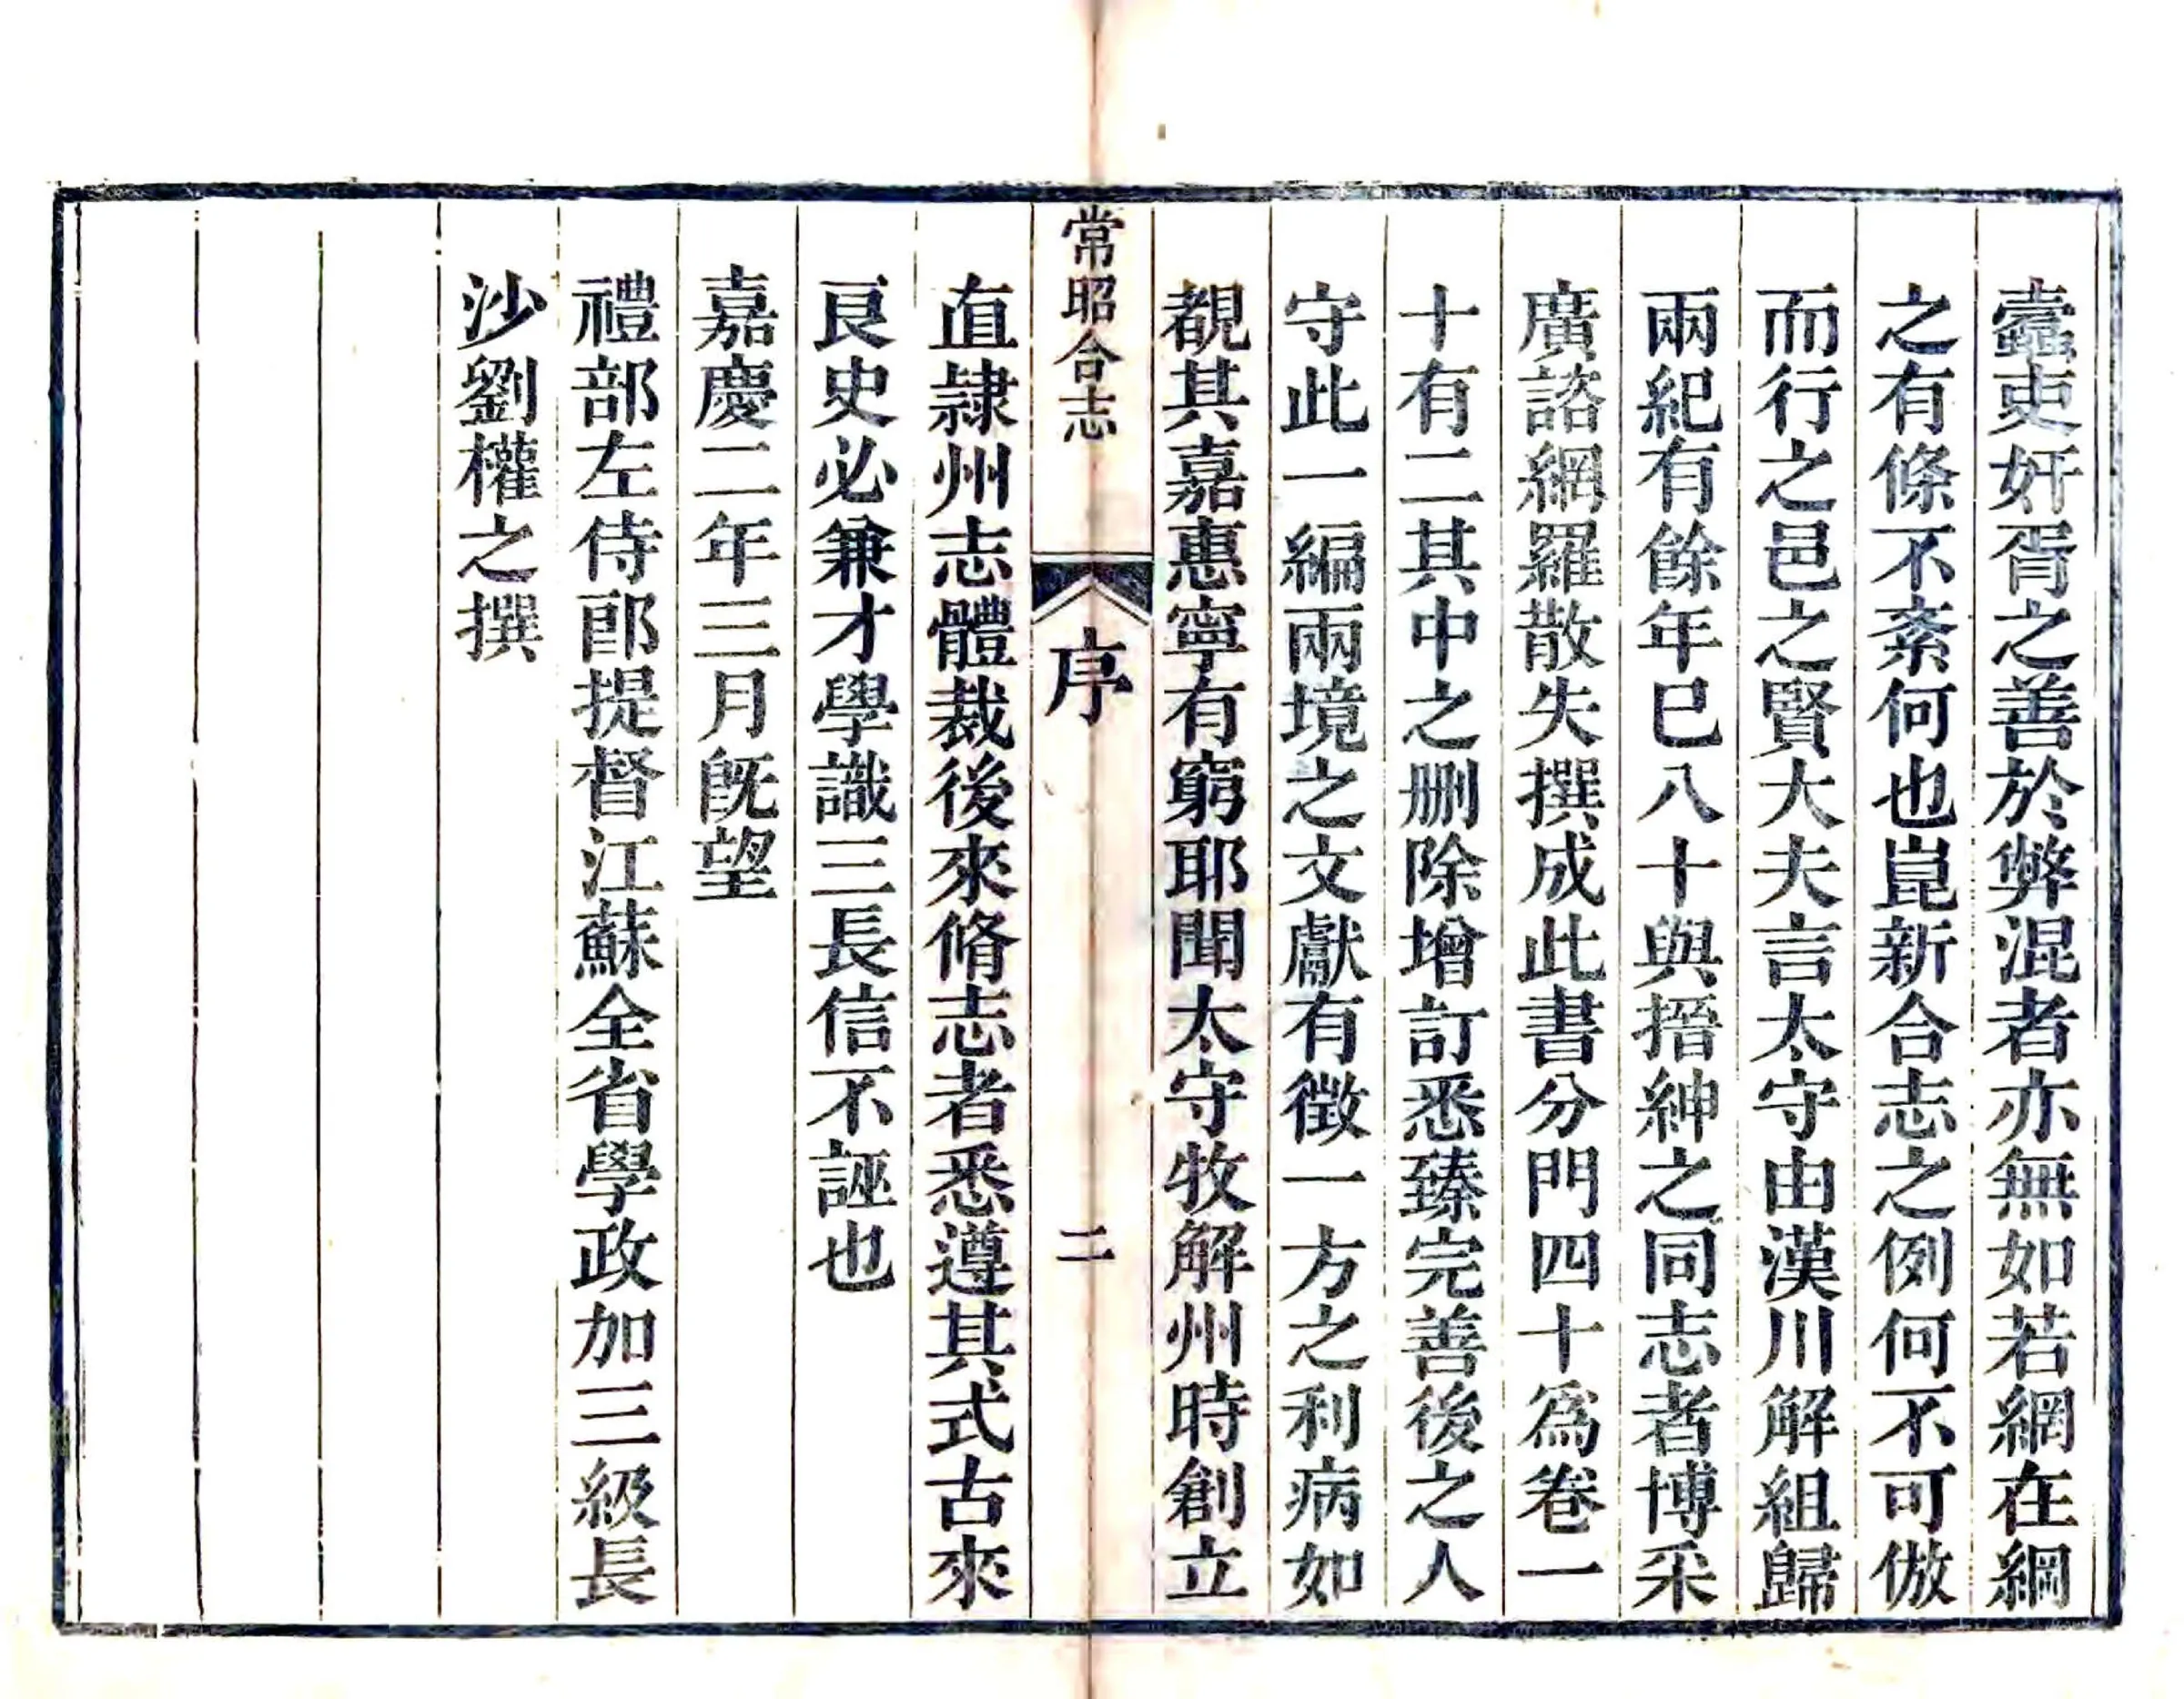 蠹吏奸胥之善於弊混者亦無如若網在綱
之有條不紊何也崑新合志之例何不可倣
而行之邑之賢大夫言太守由漢川解組歸
兩紀有餘年巳八十與搢紳之同志者博采
廣諮網羅散失撰成此書分門四十爲卷一
十有二其中之刪除增訂悉臻完善後之人
守此一編兩境之文獻有徵一方之利病如
覩其嘉惠寧有窮耶聞太守牧解州時創立
常昭合志
序
二
直隸州志體裁後來脩志者悉遵其式古來
良史必兼才學識三長信不誣也
嘉慶二年三月旣望
禮部左侍郎提督江蘇全省學政加三級長
沙劉權之撰